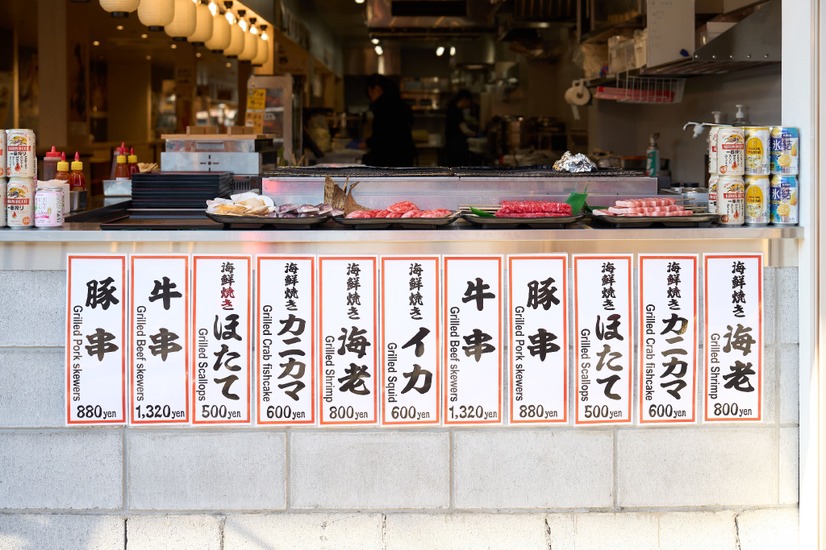 豚串
Grilled Pork skewers
880yen
牛串
Grilled Beef skewers
1,320yen
海鮮焼き
ほたて
Grilled Scallops
500yen
海鮮焼き
カニカマ
Grilled Crab fishcake
600yen
海鮮焼き
海老
Grilled Shrimp
800yen
海鮮焼き
イカ
Grilled Squid
600yen
牛串
Grilled Beef skewers
1,320yen
豚串
Grilled Pork skewers
880yen
海鮮焼き
ほたて
Grilled Scallops
500yen
海鮮焼き
カニカマ
Grilled Crab fishcake
600yen
海鮮焼き
海老
Grilled Shrimp
800yen